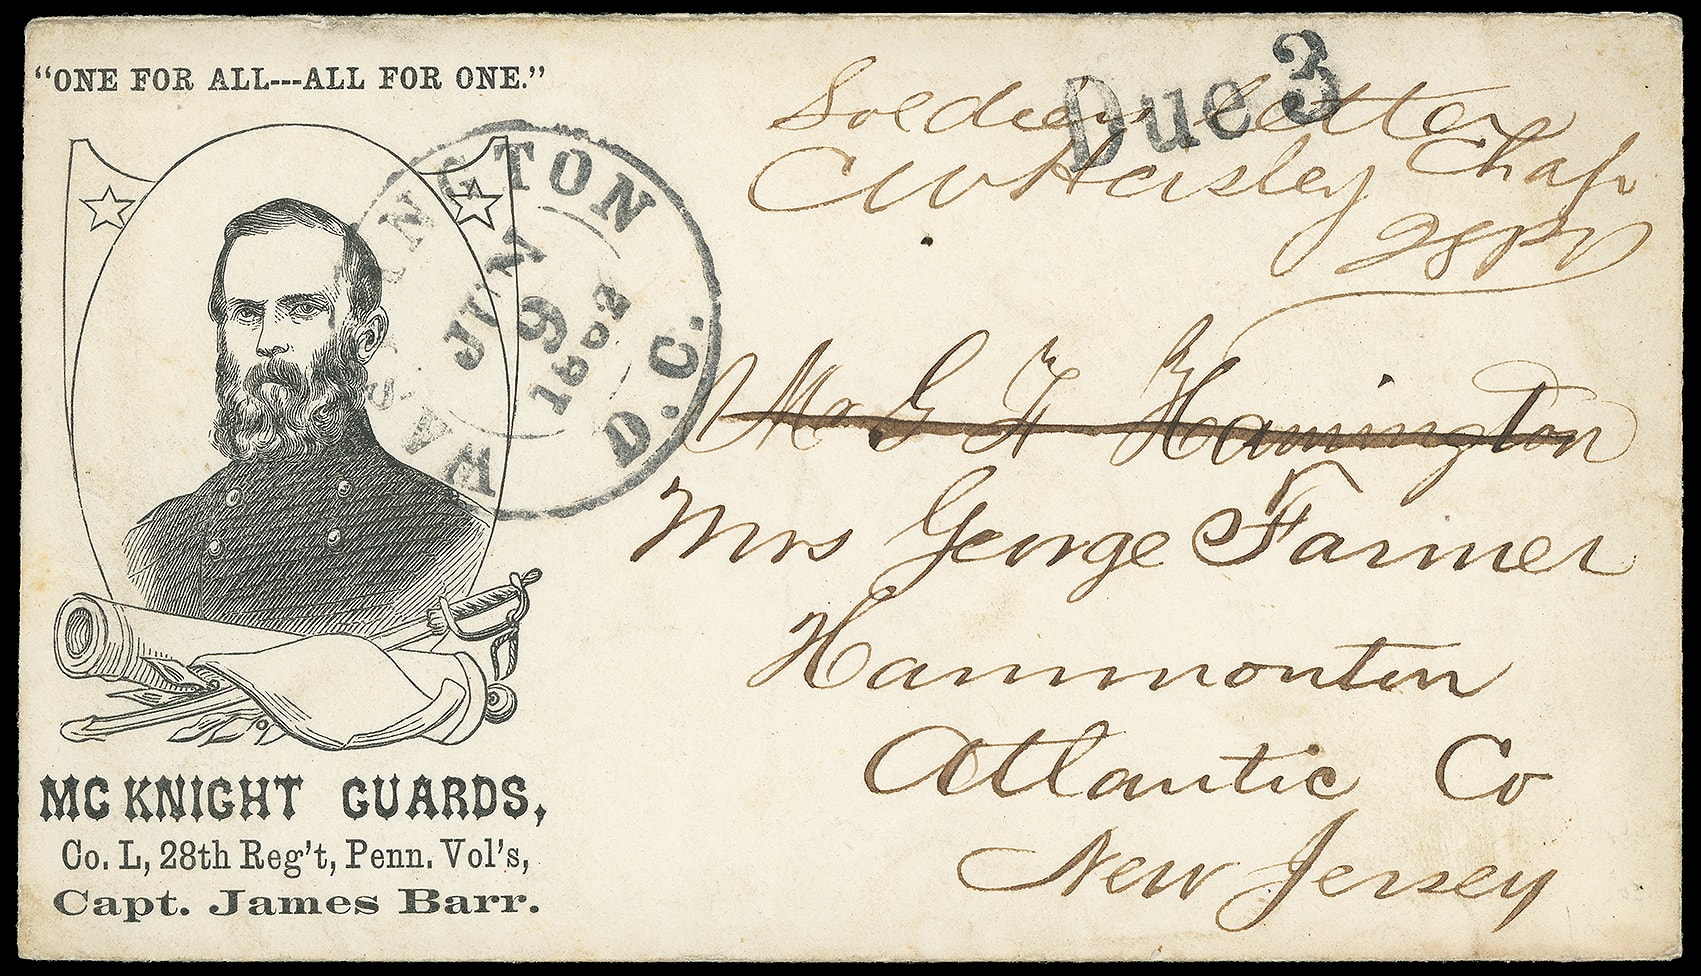 "ONE FOR ALL---ALL FOR ONE."
WASHINGTON D.C.
JUN
9
1862
MCKNIGHT GUARDS,
Co. L, 28th Reg't, Penn. Vol's,
Capt. James Barr.
Due 3
Soldiers letter
C W Heisley Chap
28 PV
Mr G F Hamington
Mrs George Farmer
Hammonton
Atlantic Co
New Jersey